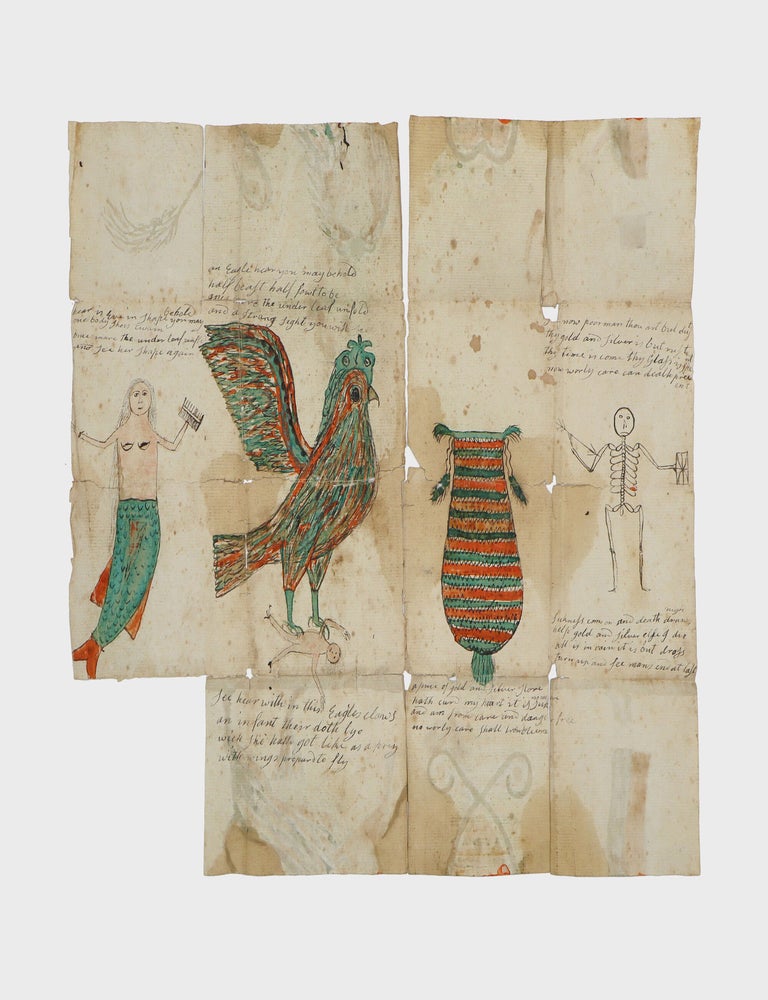 an Eagle hear you may behold
half beast half fowl to be
once more the under leaf unfold
and a strang sight you will see
hear is Eve in shape behold
one body you may
once more the under leaf
and see her shape again
now poor man thou art but dust
thy gold and silver is but rust
thy time is come thy Glass is
now worly care can death prevent
See hear with in this Eagles claws
an infant their doth lye
wich she hath got like as a prey
with wings prepard to fly
a purse of gold and silver store
hath curd my heart it is
and am from care and danger free
no worly care shall
Sickness comes on and death draws nigh
help gold and silver else I die
all is in vain it is but dross
turn up and see mans end at last